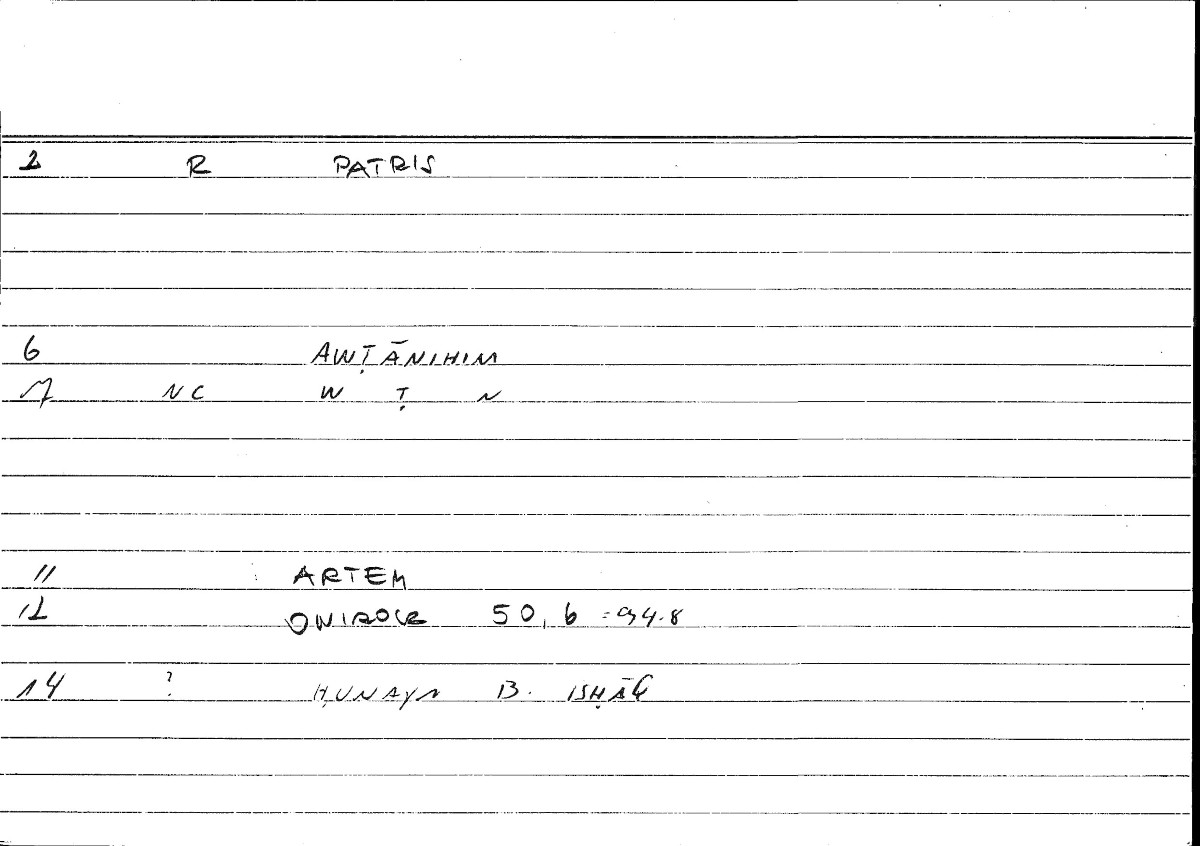 2 R PATRIS
6 AWṬĀNIHIM
7 NC W Ṭ N
11 ARTEM
12 ONIROCR 50,6 = 94.8
14 ? ḤUNAYN B. ISḤĀḲ